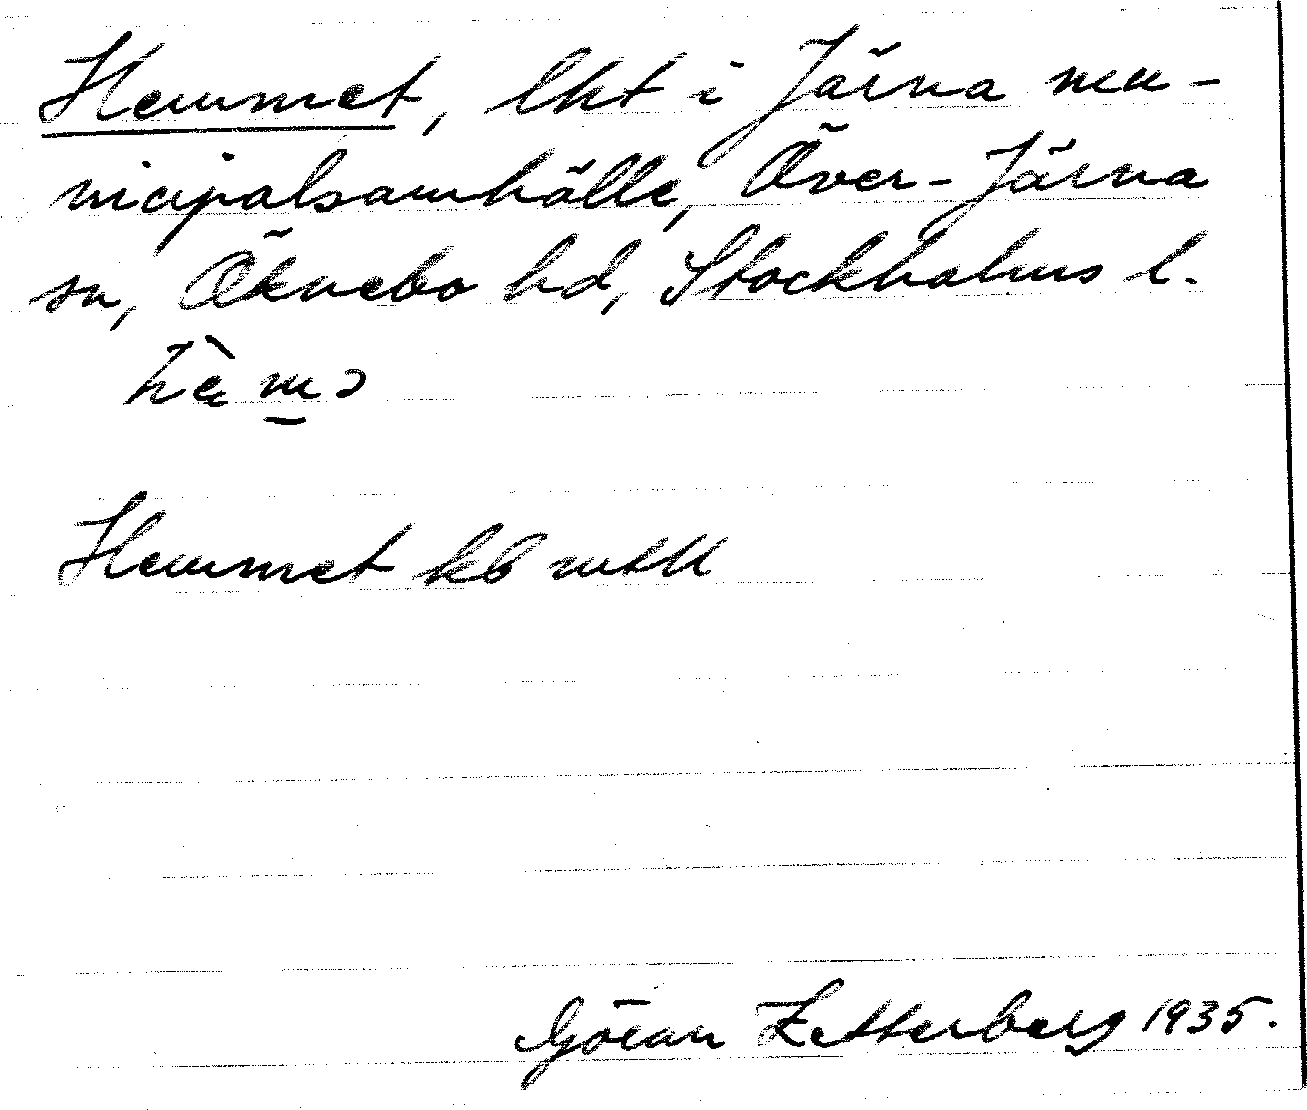 Hemmet, lht i Järna mu-
nicipalsamhälle, Över-Järna
sn, Öknebo hd, Stockholms l.
Hemmet kb mtll
Göran Zetterberg 1935.